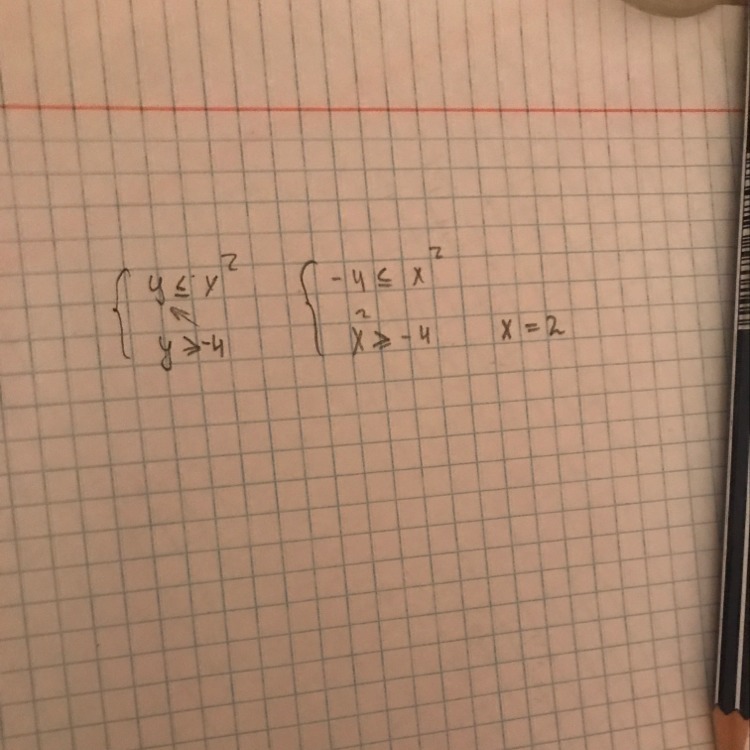 { y ≤ x²
y ≥ -4
{ -4 ≤ x²
x² ≥ -4
x = 2